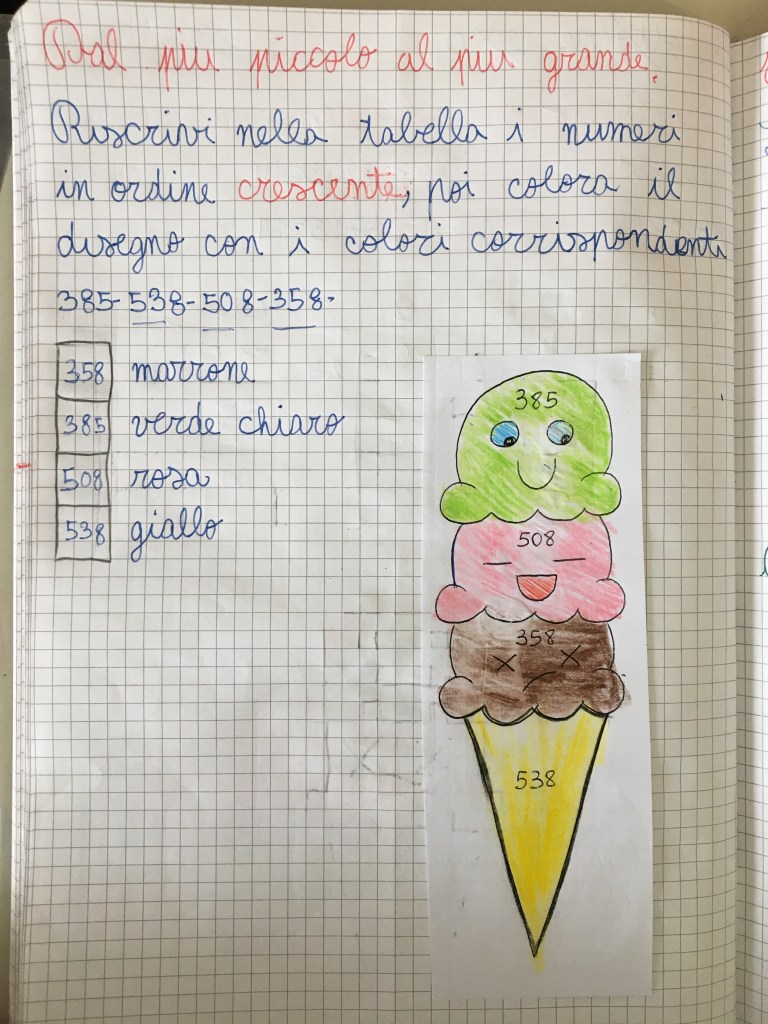 Dal più piccolo al più grande.
Riscrivi nella tabella i numeri
in ordine crescente, poi colora il
disegno con i colori corrispondenti
385-538-508-358.
358 marrone
385 verde chiaro
508 rosa
538 giallo
385
508
358
538